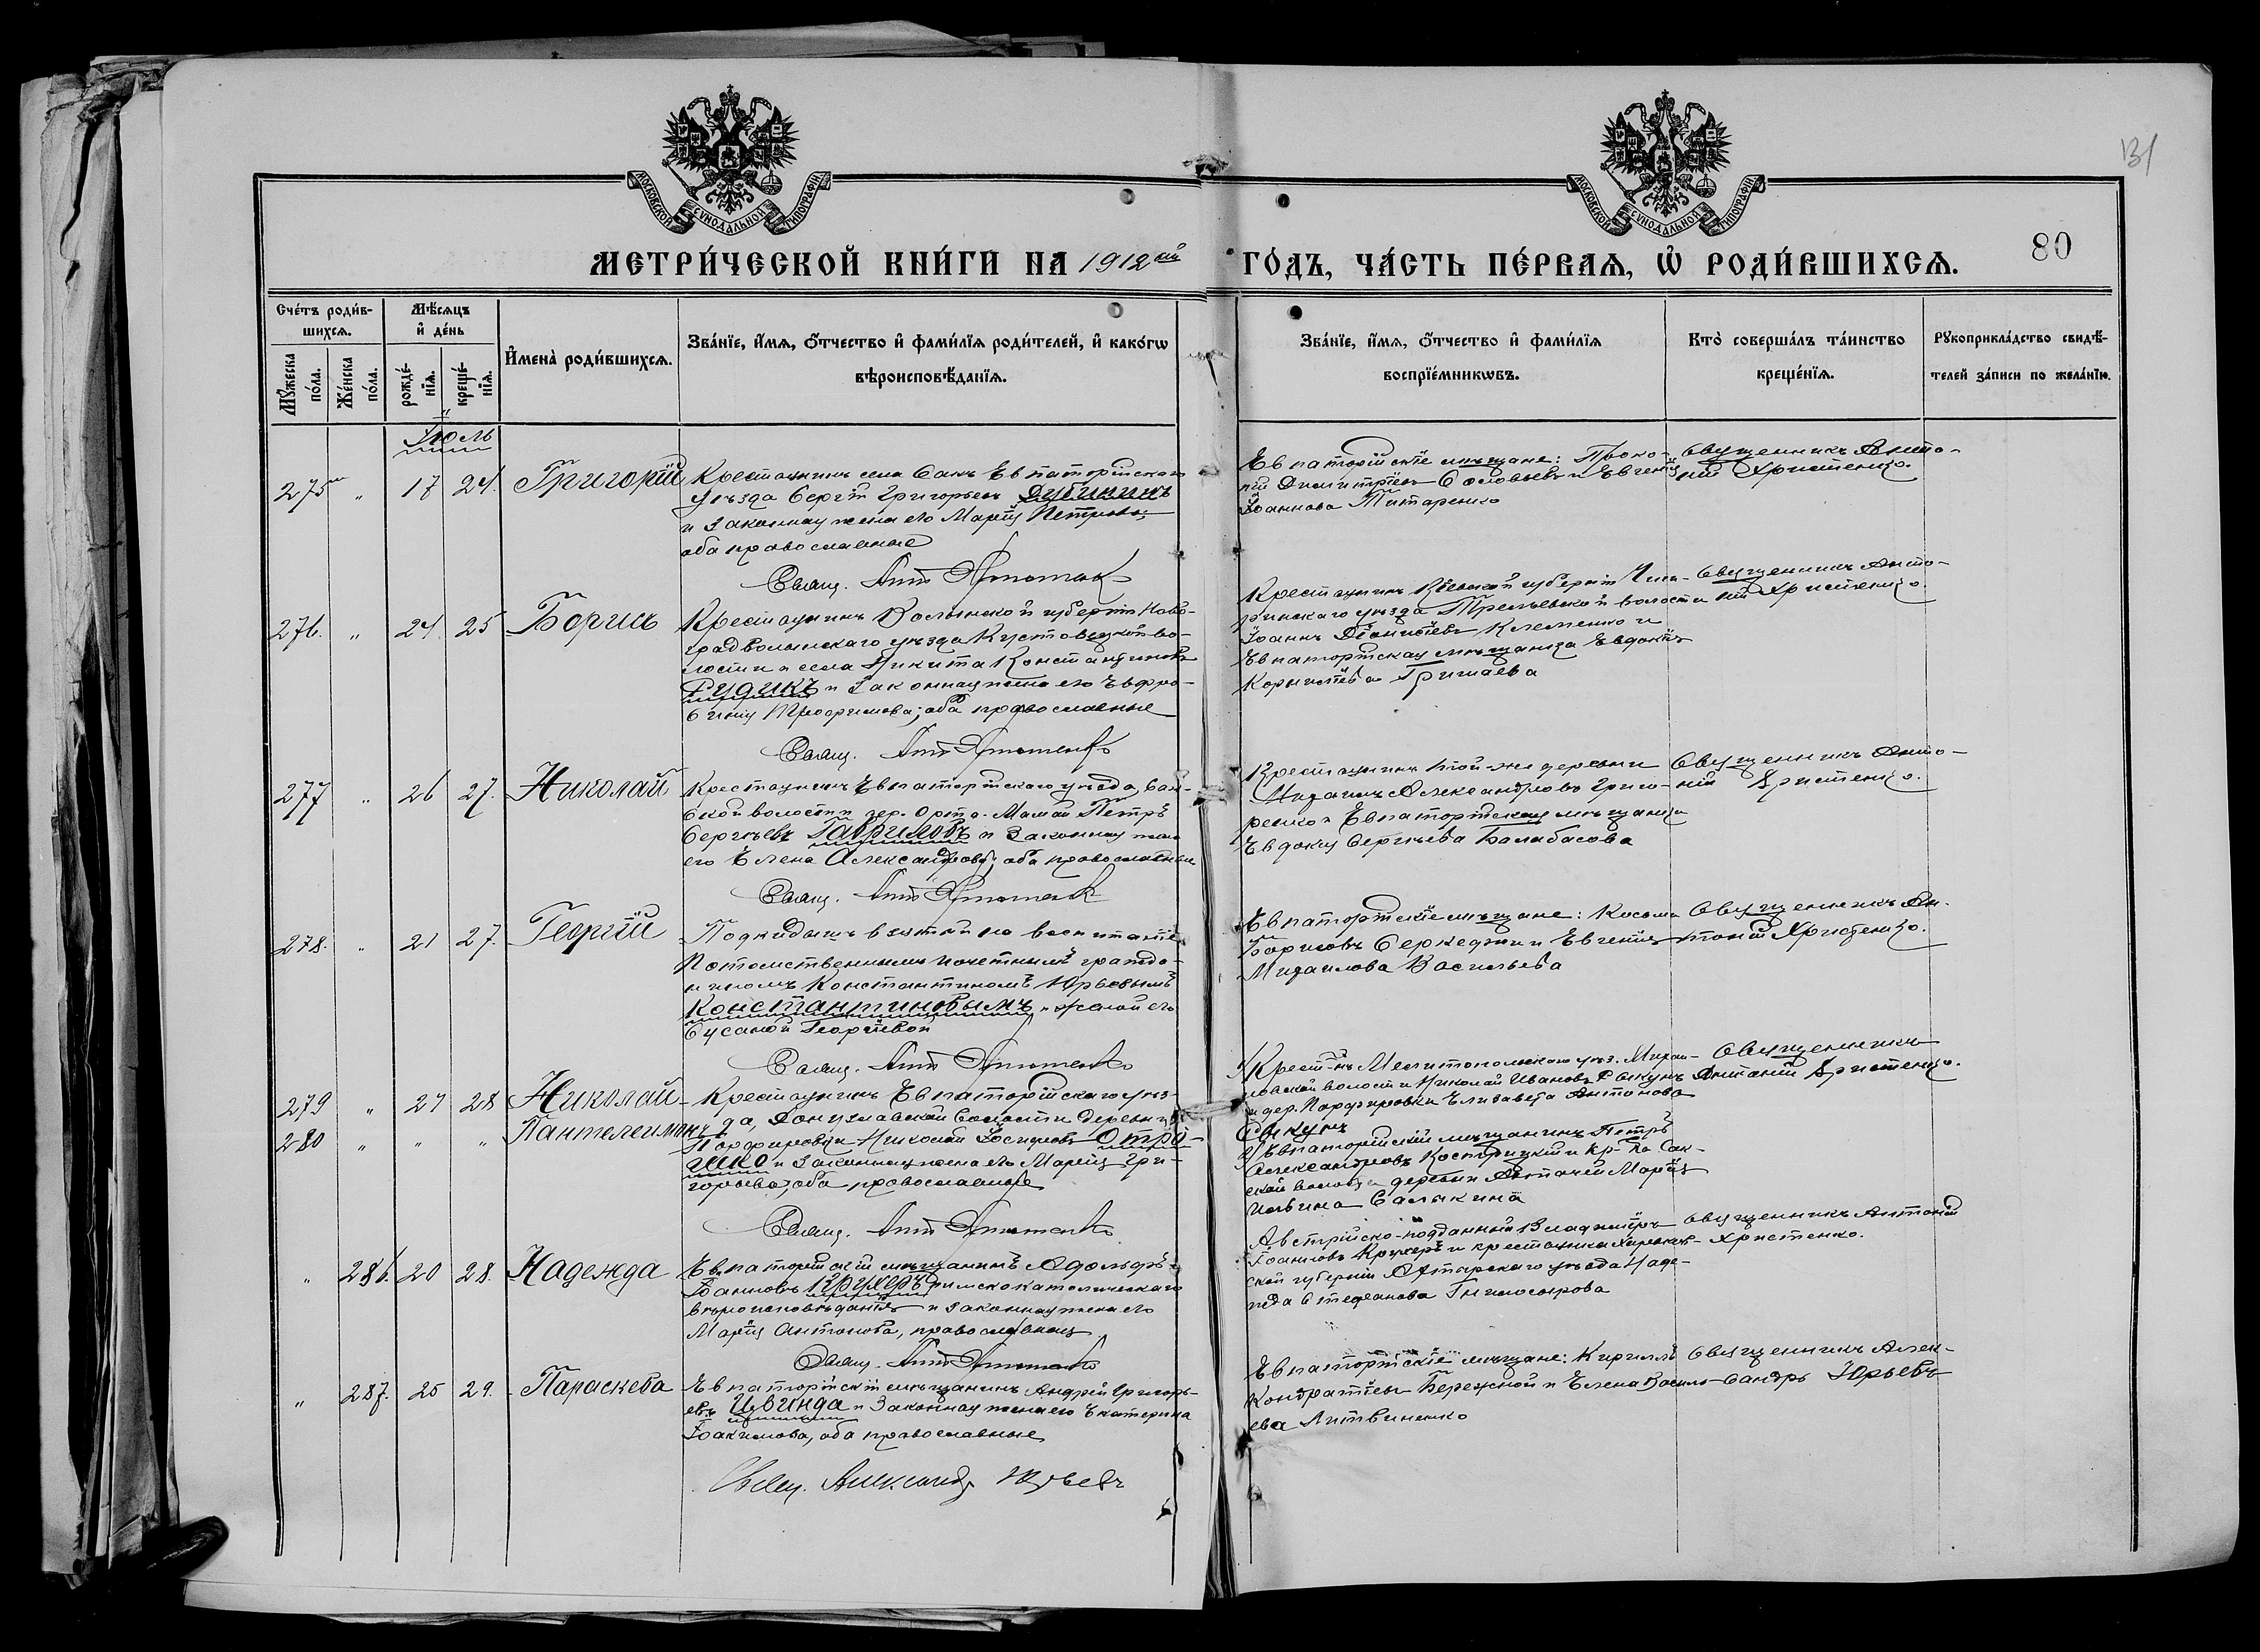 МОСКОВСКОЙ СѴНОДАЛЬНОЙ ТИПОГРАФІИ
МОСКОВСКОЙ СѴНОДАЛЬНОЙ ТИПОГРАФІИ
131
МЕТРИ́ЧЕСКОЙ КНИ́ГИ НА 1912ый ГО́ДЪ, ЧА́СТЬ ПЕ́РВАѦ, Ѡ РОДИ́ВШИХСѦ.
80
Сче́тъ роди́в-
шихсѧ.
Мꙋ́жеска по́ла.
Же́нска по́ла.
Мѣ́сѧцъ и҆ де́нь
рожде́-
нїѧ.
креще́-
нїѧ.
И҆мена̀ роди́вшихсѧ.
Зва́нїе, и҆́мѧ, ѻ҆́тчество и҆ фами́лїѧ роди́телей, и҆ како́гѡ
вѣроисповѣ́данїѧ.
Зва́нїе, и҆́мѧ, ѻ҆́тчество и҆ фами́лїѧ
воспрїе́мникѡвъ.
Кто̀ соверша́лъ та́инство
креще́нїѧ.
Рꙋкоприкла́дство свидѣ́-
телей за́писи по жела́нїю.
Іюль
275 " 17 24. Григорій
Крестьянинъ села Сакъ Евпаторійскаго
уѣзда Сергій Григорьевъ Дубининъ
и законная жена его Марія Петрова;
оба православные
Свящ. Ант Христенко
Евпаторійскіе мѣщане: Проко-
пій Димитріевъ Соловьевъ и Евгенія
Іоаннова Титаренко
Священникъ Анто-
ній Христенко.
276. " 24 25 Борисъ
Крестьянинъ Волынской губерніи Ново-
градволынскаго уѣзда Кустовецкой во-
лости и села Никита Константиновъ
Рудикъ и законная жена его Евфро-
синія Трофимова; оба православные
Свящ. Ант Христенко
Крестьянинъ Кіевской губерніи Чиги-
ринскаго уѣзда, волости
Іоаннъ Діонисіевъ Клеменко и
Евпаторійская мѣщанка Евдокія
Корниліева Гришаева
Священникъ Анто-
ній Христенко.
277 " 26 27. Николай
Крестьянинъ Евпаторійскаго уѣзда, Сак-
ской волости дер. Орта-Мамай Петръ
Сергѣевъ Гавриловъ и законная жена
его Елена Александрова; оба православные
Свящ. Ант Христенко
Крестьянинъ той-же деревни
Михаилъ Александровъ Григо-
ренко и Евпаторійская мѣщанка
Евдокія Сергѣева Балабасова
Священникъ Анто-
ній Христенко.
278. " 21 27. Георгій
Подкидышъ взятый на воспитаніе
Потомственнымъ почетнымъ гражда-
ниномъ Константиномъ Юрьевымъ
Константиновымъ и женой его
Сусаной Георгіевой
Свящ. Ант Христенко
Евпаторійскіе мѣщане: Косьма
Борисовъ Серкеджи и Евгенія
Михаилова Васильева
Священникъ Ан-
тоній Христенко.
279 " 27 28 Николай
280 " " " Пантелеимонъ
Крестьянинъ Евпаторійскаго уѣз-
да, Донузлавской волости деревни
Порфировки Николай Іосифовъ Отро-
шко и законная жена его Марія Гри-
горьева; оба православные
Свящ. Ант Христенко
1) Крест-нъ Мелитопольскаго уѣз. Михай-
ловской волости Николай Ивановъ Рыкунъ
и дер. Порфировки Елизавета Антонова
Рыкунъ
2) Евпаторійскій мѣщанинъ Петръ
Александровъ Кострицкій и кр-ка Сак-
ской волости деревни Марія
Ильина Салыкина
Священникъ
Антоній Христенко.
" 286. 20 28. Надежда
Евпаторійскій мѣщанинъ Адольфъ
Іоанновъ Крухеръ римско католическаго
вѣроисповѣданія и законная жена его
Марія Антонова, православная
Свящ. Ант Христенко
Австрійско-подданный Владиміръ
Іоанновъ Крухеръ и крестьянка Харьков-
ской губерніи Ахтырскаго уѣзда Наде-
жда Стефанова Гнилосырова
Священникъ Антоній
Христенко.
" 287. 25 29. Параскева
Евпаторійскій мѣщанинъ Андрей Григорь-
евъ Цвинда и законная жена его Екатерина
Іоакимова, оба православные
Свящ. Александръ Юрьевъ
Евпаторійскіе мѣщане: Кириллъ
Кондратіевъ Бережной и Елена Василь-
ева Литвиненко
Священникъ Алек-
сандръ Юрьевъ